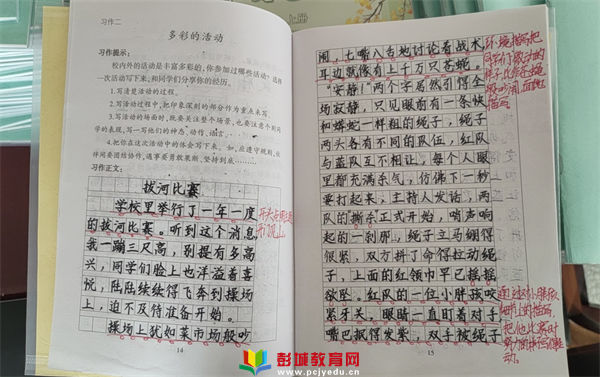 习作二
多彩的活动
习作提示:
校内外的活动是丰富多彩的,你参加过哪些活动?选择
一次活动写下来,和同学们分享你的经历。
1.写清楚活动的过程。
2.写活动过程中,把印象深刻的部分作为重点来写。
3.写活动的场面时,既要关注整个场景,也要注意个别同
学的表现,写一写他们的神态、动作、语言。
4.把你在这次活动中的体会写下来。如,应遵守规则,伙
伴间要团结协作,遇事要勇敢果断,坚持到底………
习作正文:
拔河比赛
学校里举行了一年一度
的拔河比赛。听到这个消息,
我一蹦三尺高,别提有多高
兴,同学们脸上也洋溢着喜
悦,陆陆续续得飞奔到操场
上,迫不及待准备开始。
操场上犹如菜市场般吵
开门见山。
14
闹,七嘴八舌地讨论着战术,
耳边就像有上千万只苍蝇。
“安静”两个字居然引得全
场寂静,只见眼前有一条快
和蟒蛇一样粗的绳子,绳子
两头各有不同的队伍,红队
与蓝队互不相让。每个人眼
里都充满杀气,仿佛下一秒
要打起来,主持人发话,两
队的撕杀正式开始,哨声响
起的一刹那,绳子立马绷得
很紧,双方拼了命得拉动绳
子,上面的红领巾早已摇摇
欲坠。红队的一位小胖孩咬
紧牙关,眼睛一直盯着对手,
嘴巴抿得发紫,双手被绳子
15
彭城教育网
www.pcjyedu.cn